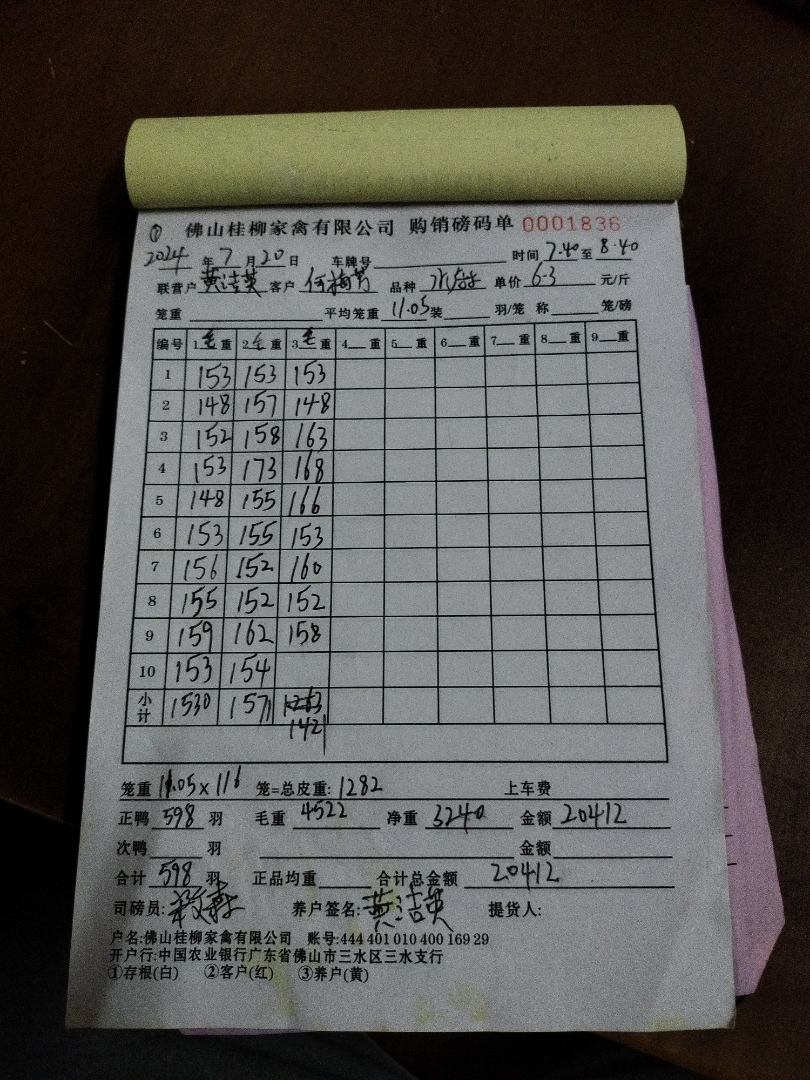 ① 佛山桂柳家禽有限公司 购销磅码单 0001836
2024年7月20日 车牌号 时间 7.40至8.40
联营户 黄洁英 客户 品种 单价 6.3 元/斤
笼重 平均笼重 11.05 装 羽/笼 称 笼/磅
编号 1毛重 2毛重 3毛重 4 重 5 重 6 重 7 重 8 重 9 重
1 153 153 153
2 148 157 148
3 152 158 163
4 153 173 168
5 148 155 166
6 153 155 153
7 156 152 160
8 155 152 152
9 159 162 158
10 153 154
小计 1530 1571
1421
笼重 11.05×116 笼=总皮重: 1282 上车费
正鸭 598 羽 毛重 4522 净重 3240 金额 20412
次鸭 羽 金额
合计 598 羽 正品均重 合计总金额 20412
司磅员: 养户签名: 黄洁英 提货人:
户名:佛山桂柳家禽有限公司 账号:444 401 010 400 169 29
开户行:中国农业银行广东省佛山市三水区三水支行
①存根(白) ②客户(红) ③养户(黄)